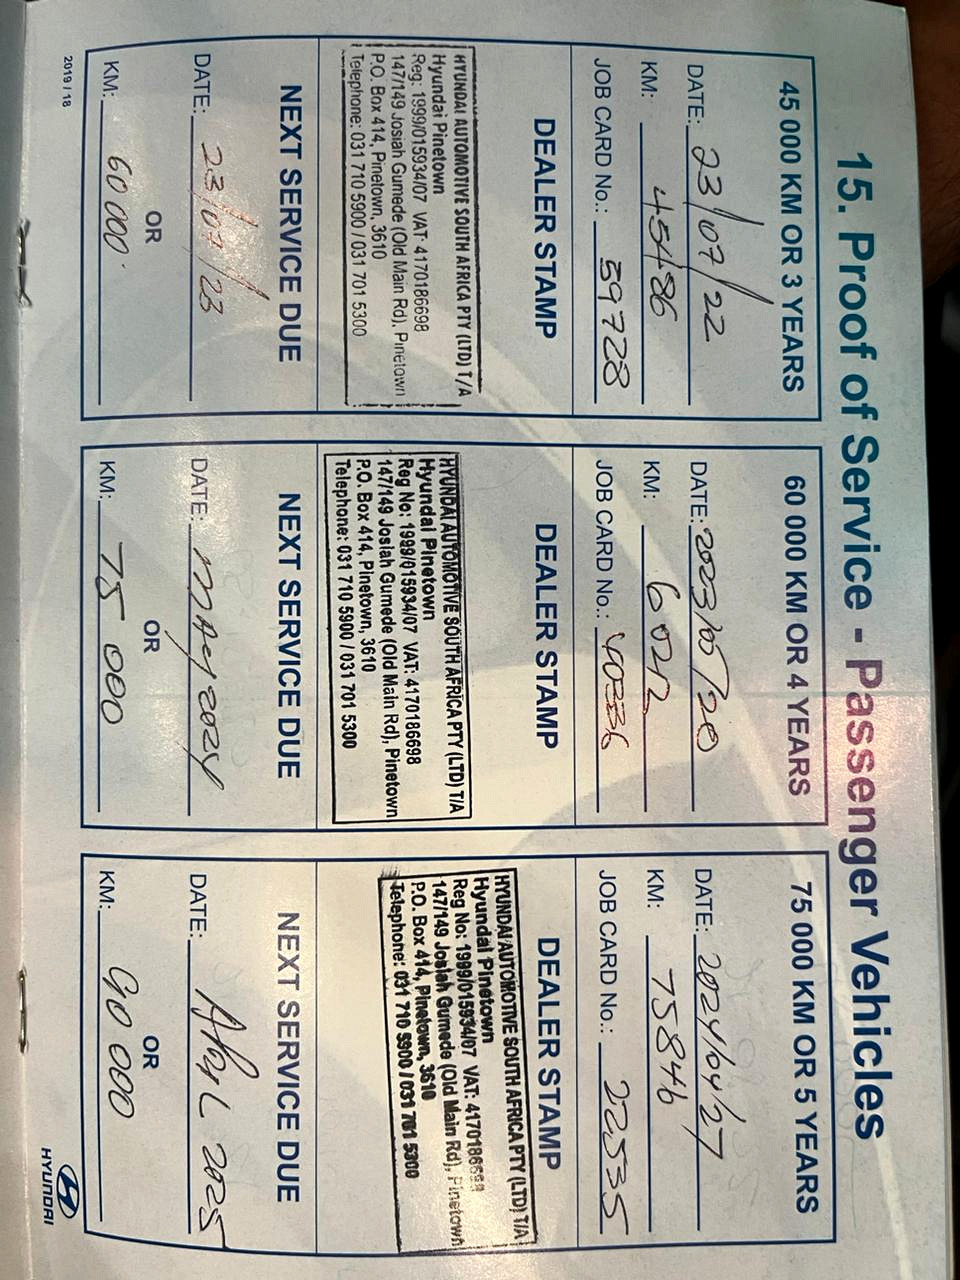 15. Proof of Service - Passenger Vehicles
45 000 KM OR 3 YEARS
DATE: 23/07/22
KM: 45486
JOB CARD No.: 59728
DEALER STAMP
HYUNDAI AUTOMOTIVE SOUTH AFRICA PTY (LTD) T/A
Hyundai Pinetown
Reg: 1999/015934/07 VAT: 4170186698
147/149 Josiah Gumede (Old Main Rd), Pinetown
P.O. Box 414, Pinetown, 3610
Telephone: 031 710 5900 / 031 701 5300
NEXT SERVICE DUE
DATE: 23/07/23
OR
KM: 60 000
60 000 KM OR 4 YEARS
DATE: 2023/05/20
KM: 6 0212
JOB CARD No.: 40336
DEALER STAMP
HYUNDAI AUTOMOTIVE SOUTH AFRICA PTY (LTD) T/A
Hyundai Pinetown
Reg No: 1999/015934/07 VAT: 4170186698
147/149 Josiah Gumede (Old Main Rd), Pinetown
P.O. Box 414, Pinetown, 3610
Telephone: 031 710 5900 / 031 701 5300
NEXT SERVICE DUE
DATE: MAY 2024
OR
KM: 75 000
75 000 KM OR 5 YEARS
DATE: 2024/04/27
KM: 75846
JOB CARD No.: 22535
DEALER STAMP
HYUNDAI AUTOMOTIVE SOUTH AFRICA PTY (LTD) T/A
Hyundai Pinetown
Reg No: 1999/015934/07 VAT: 4170186698
147/149 Josiah Gumede (Old Main Rd), Pinetown
P.O. Box 414, Pinetown, 3610
Telephone: 031 710 5900 / 031 701 5300
NEXT SERVICE DUE
DATE: APRIL 2025
OR
KM: 90 000
2019 / 18
HYUNDAI